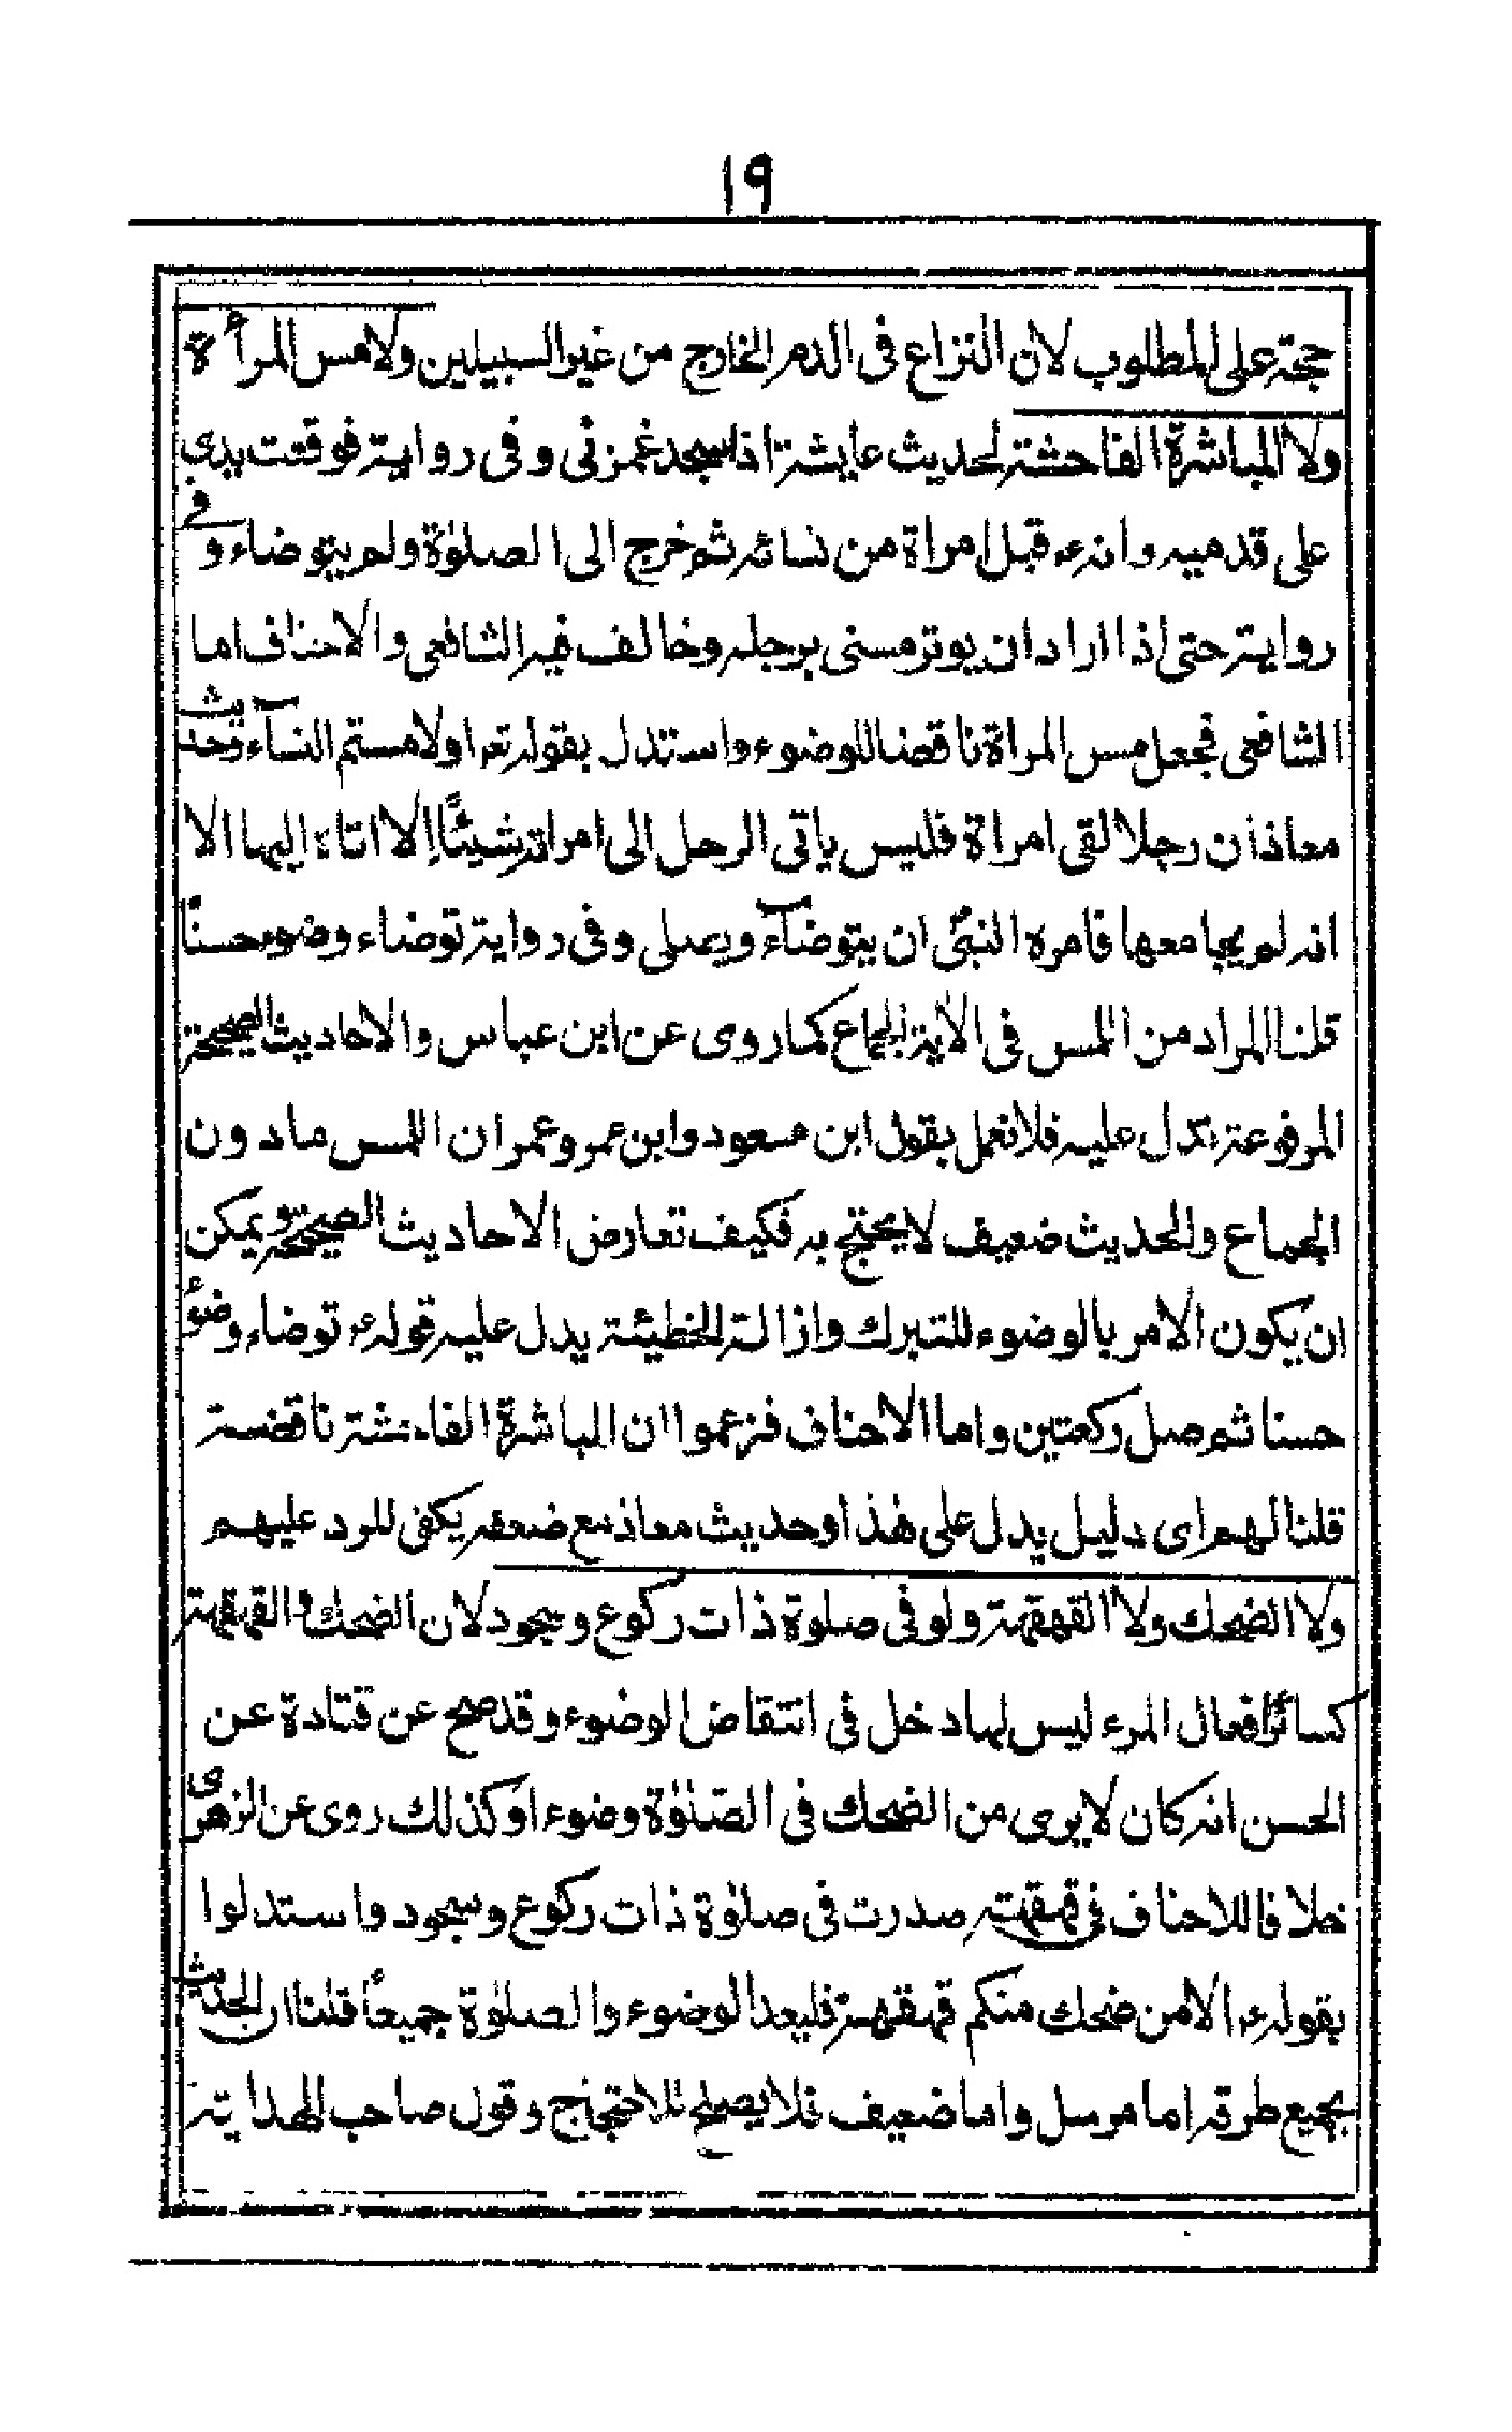 ١٩
حجة على المطلوب لان النزاع فى الدم الخارج من غير السبيلين ولا مس المرأة
ولا المباشرة الفاحشة لحديث عايشة اذا سجد غمزنى وفى رواية فوقعت يدى
على قدميه وانهء قبل امراة من نسائه ثم خرج الى الصلوٰة ولم يتوضاء وفى
رواية حتى اذا اراد ان يوتر مسنى برجله وخالف فيه الشافعى والاحناف اما
الشافعى فجعل مس المراة ناقضا للوضوء واستدل بقوله تعا ولا مستم النسآء وحديث
معاذ ان رجلا لقى امراة فليس ياتى الرحل الى امراته شيئًا الا اتاه اليها الا
انه لم يجامعها فامره النبىّ ان يتوضآء ويصلى وفى رواية توضاء وضوء حسنًا
قلنا المراد من المس فى الأية الجماع كما روى عن ابن عباس والاحاديث الصحيحة
المرفوعة تدل عليه فلا نعمل بقول ابن مسعود وابن عمر وعمر ان اللمس ما دون
الجماع والحديث ضعيف لا يحتج به فكيف تعارض الاحاديث الصحيحة ويمكن
ان يكون الامر بالوضوء للتبرك وازالة الخطيئة يدل عليه قولهء توضاء وضوء
حسنا ثم صل ركعتين واما الاحناف فزعموا ان المباشرة الفاحشة ناقضة
قلنا لهم اى دليل يدل على هذا وحديث معاذ مع ضعفه يكفى للرد عليهم
ولا الضحك ولا القهقهة ولو فى صلوة ذات ركوع وسجود لان الضحك والقهقهة
كسائر افعال المرء ليس لها دخل فى انتقاض الوضوء وقد صح عن قتادة عن
الحسن انه كان لا يرى من الضحك فى الصّلوٰة وضوء اوكذلك روى عن الزهرى
خلافا للاحناف فى قهقهة صدرت فى صلوٰة ذات ركوع وسجود واستدلوا
بقولهء الا من ضحك منكم قهقهة فليعد الوضوء والصلوٰة جميعاً قلنا ان الحديث
بجميع طرقه اما مرسل واما ضعيف فلا يصلح للاحتجاج وقول صاحب الهداية